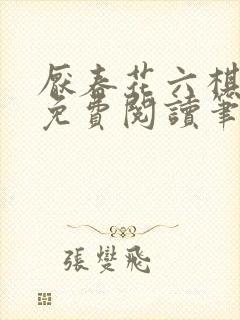 厭春花六棋
免費閱讀筆
張燮飛